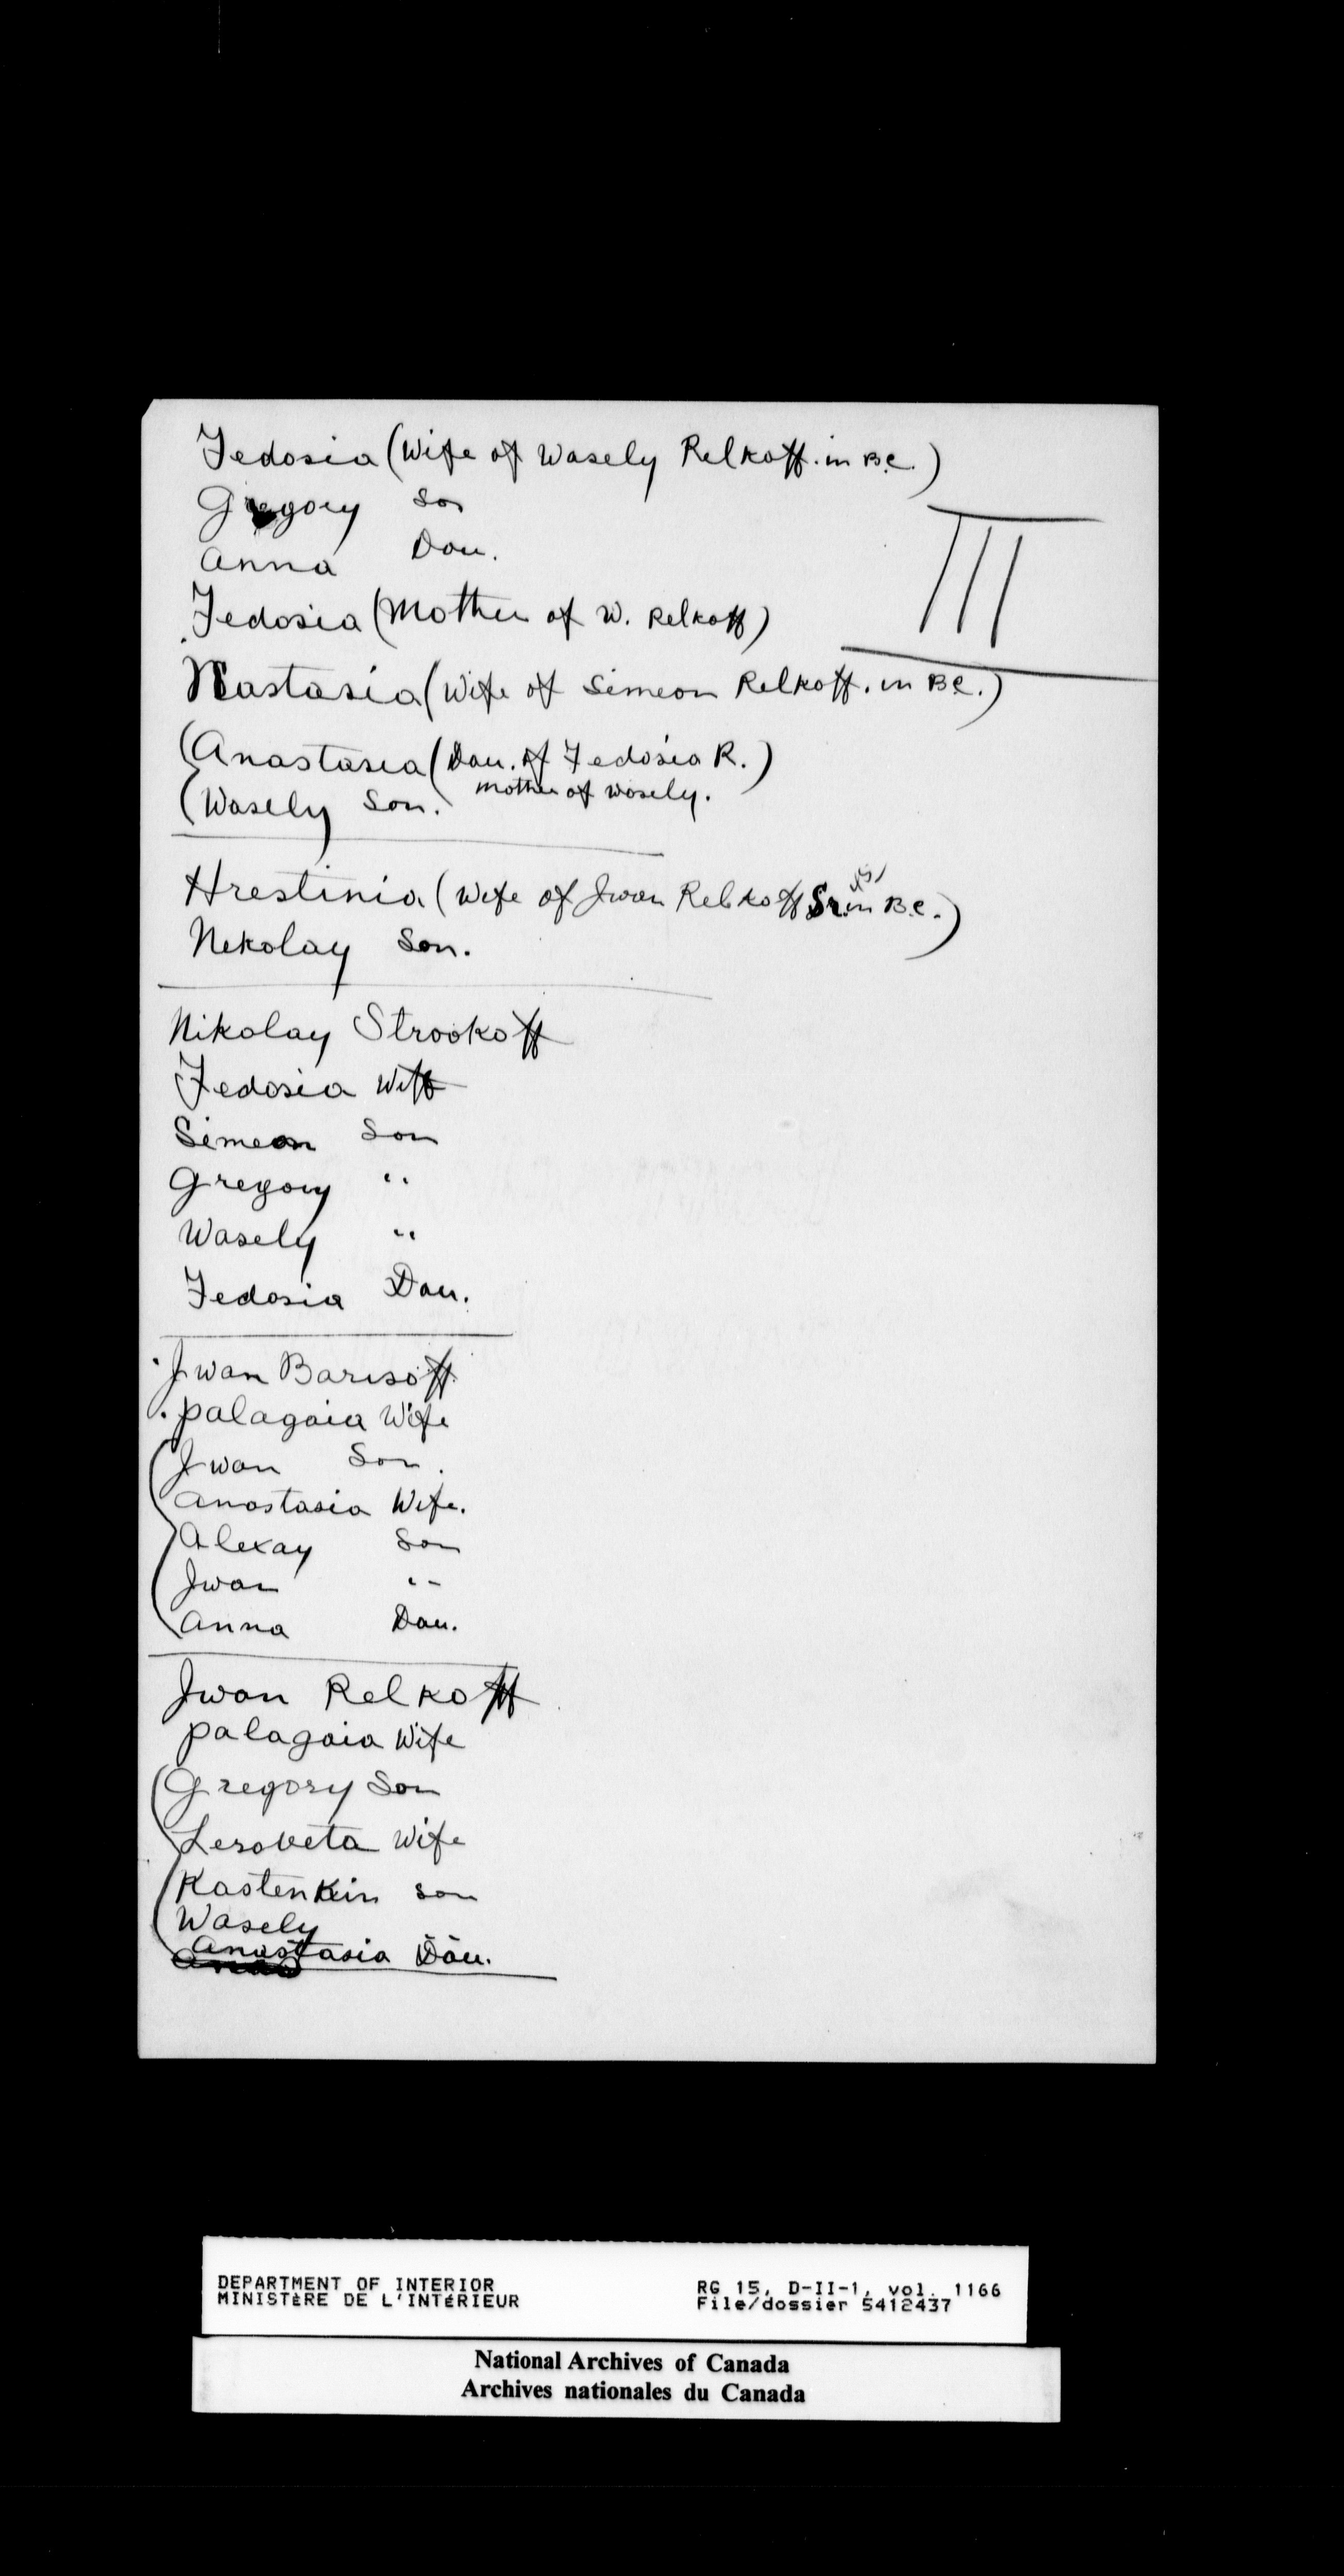 Fedosia (Wife of Wasely Relkoff. in B.C.)
Gregory Son
Anna Dau.
III
Fedosia (Mother of W. Relkoff)
Nastasia (Wife of Simeon Relkoff. in B.C.)
(Anastasia (Dau. of Fedosia R.)
(Wasely Son. mother of Wasely.
Hrestinia (Wife of Iwan Relkoff Sr. in B.C.)
Nekolay Son.
Nikolay Strookoff
Fedosia Wiff
Simeon Son
Gregory "
Wasely "
Fedosia Dau.
Iwan Barisoff
Palagaia Wife
Iwan Son.
Anastasia Wife.
Alexay Son
Iwan "
Anna Dau.
Iwan Relkoff
Palagaia Wife
Gregory Son
Lesoveta Wife
Kastenkin son
Wasely
Anastasia Dau.
DEPARTMENT OF INTERIOR
MINISTÈRE DE L'INTÉRIEUR
RG 15, D-II-1, vol. 1166
File/dossier 5412437
National Archives of Canada
Archives nationales du Canada